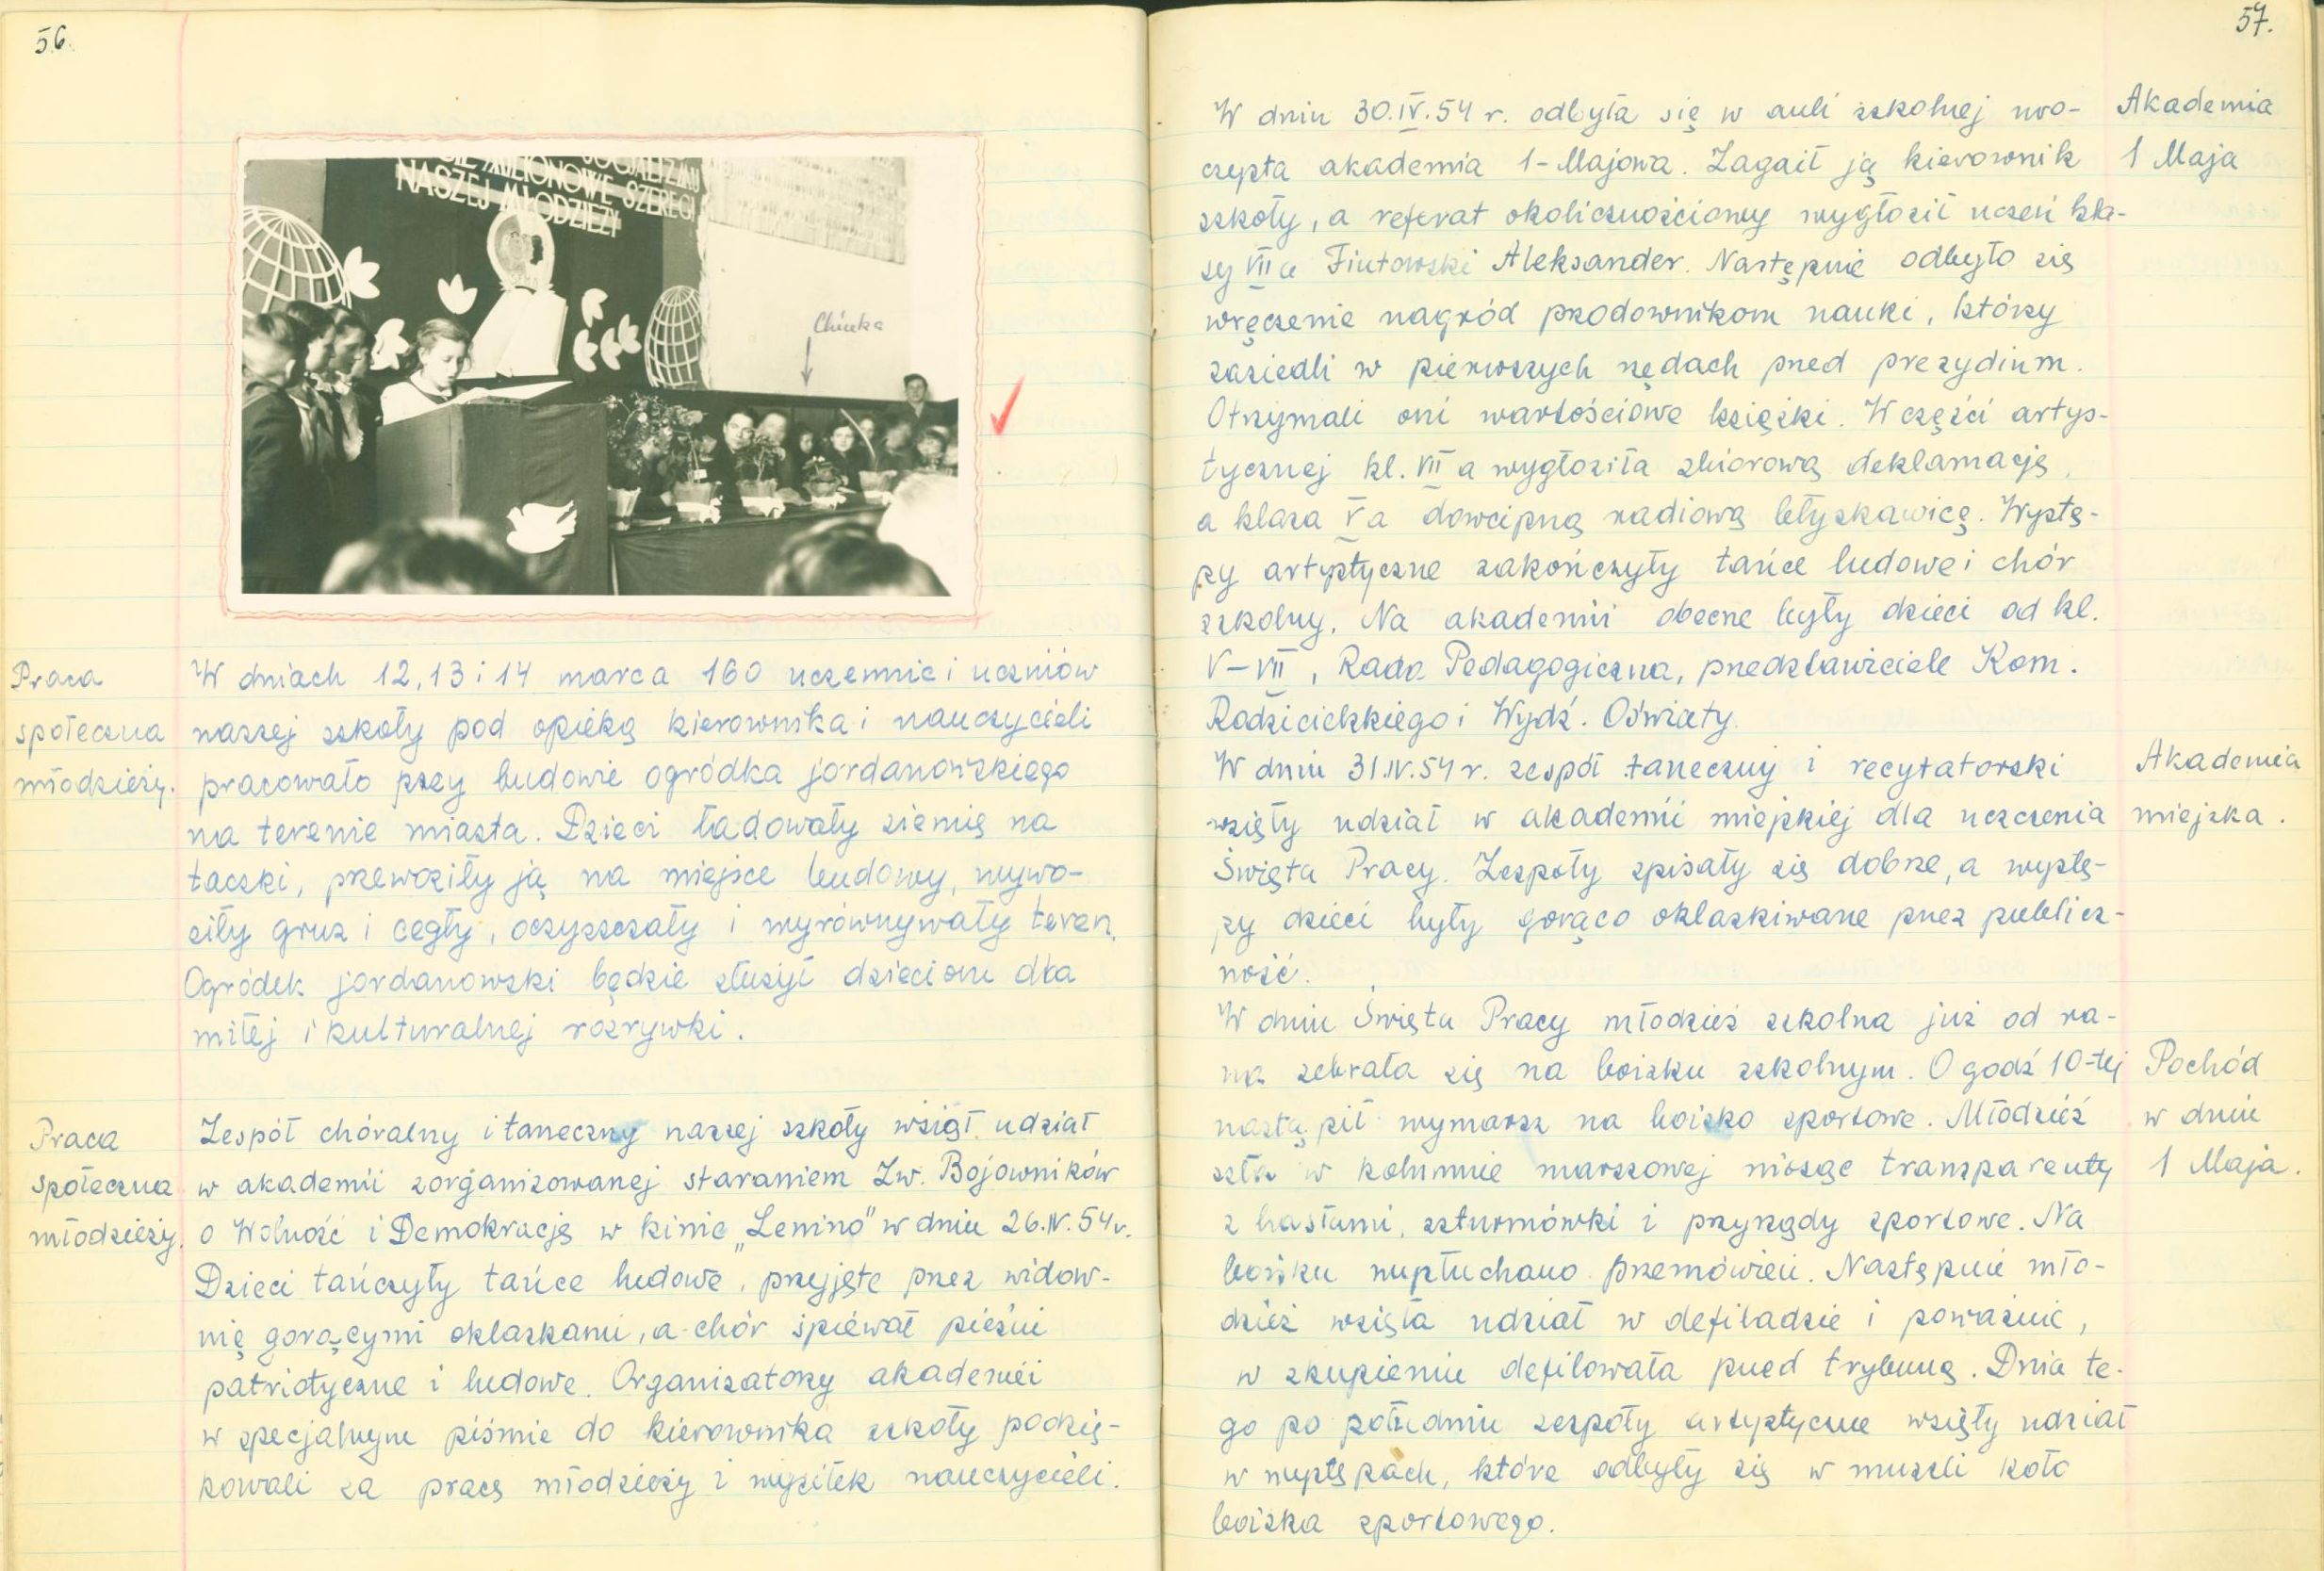 56.
SOCJALIZMU
MILIONOWE SZEREGI
NASZEJ MŁODZIEŻY
Chinka
Praca
społeczna
młodzieży.
W dniach 12, 13 i 14 marca 160 uczennic i uczniów
naszej szkoły pod opieką kierownika i nauczycieli
pracowało przy budowie ogródka jordanowskiego
na terenie miasta. Dzieci ładowały ziemię na
taczki, przewoziły ją na miejsce budowy, wywo-
ziły gruz i cegły, oczyszczały i wyrównywały teren.
Ogródek jordanowski będzie służył dzieciom dla
miłej i kulturalnej rozrywki.
Praca
społeczna
młodzieży.
Zespół chóralny i taneczny naszej szkoły wziął udział
w akademii zorganizowanej staraniem Zw. Bojowników
o Wolność i Demokrację w kinie „Lenino" w dniu 26.IV.54r.
Dzieci tańczyły tańce ludowe, przyjęte przez widow-
nię gorącymi oklaskami, a chór śpiewał pieśni
patriotyczne i ludowe. Organizatorzy akademii
w specjalnym piśmie do kierownika szkoły podzię-
kowali za pracę młodzieży i wysiłek nauczycieli.
57.
W dniu 30.IV.54 r. odbyła się w auli szkolnej uro-
czysta akademia 1-Majowa. Zagaił ją kierownik
szkoły, a referat okolicznościowy wygłosił uczeń kla-
sy VII a Fiutowski Aleksander. Następnie odbyło się
wręczenie nagród przodownikom nauki, którzy
zasiedli w pierwszych rzędach przed prezydium.
Otrzymali oni wartościowe książki. W części artys-
tycznej kl. VII a wygłosiła zbiorową deklamację,
a klasa V a dowcipną radiową błyskawicę. Wystę-
py artystyczne zakończyły tańce ludowe i chór
szkolny. Na akademii obecne były dzieci od kl.
V-VII, Rada Pedagogiczna, przedstawiciele Kom.
Rodzicielskiego i Wydź. Oświaty.
Akademia
1 Maja
W dniu 31.IV.54 r. zespół taneczny i recytatorski
wzięły udział w akademii miejskiej dla uczczenia
Święta Pracy. Zespoły spisały się dobrze, a wystę-
py dzieci były gorąco oklaskiwane przez publicz-
ność.
Akademia
miejska.
W dniu Święta Pracy młodzież szkolna już od ra-
na zebrała się na boisku szkolnym. O godź 10-tej
nastąpił wymarsz na boisko sportowe. Młodzież
szła w kolumnie marszowej niosąc transparenty
z hasłami, szturmówki i przyrządy sportowe. Na
boisku wysłuchano przemówień. Następnie mło-
dzież wzięła udział w defiladzie i poważnie,
w skupieniu defilowała przed trybuną. Dnia te-
go po południu zespoły artystyczne wzięły udział
w występach, które odbyły się w muszli koło
boiska sportowego.
Pochód
w dniu
1 Maja.